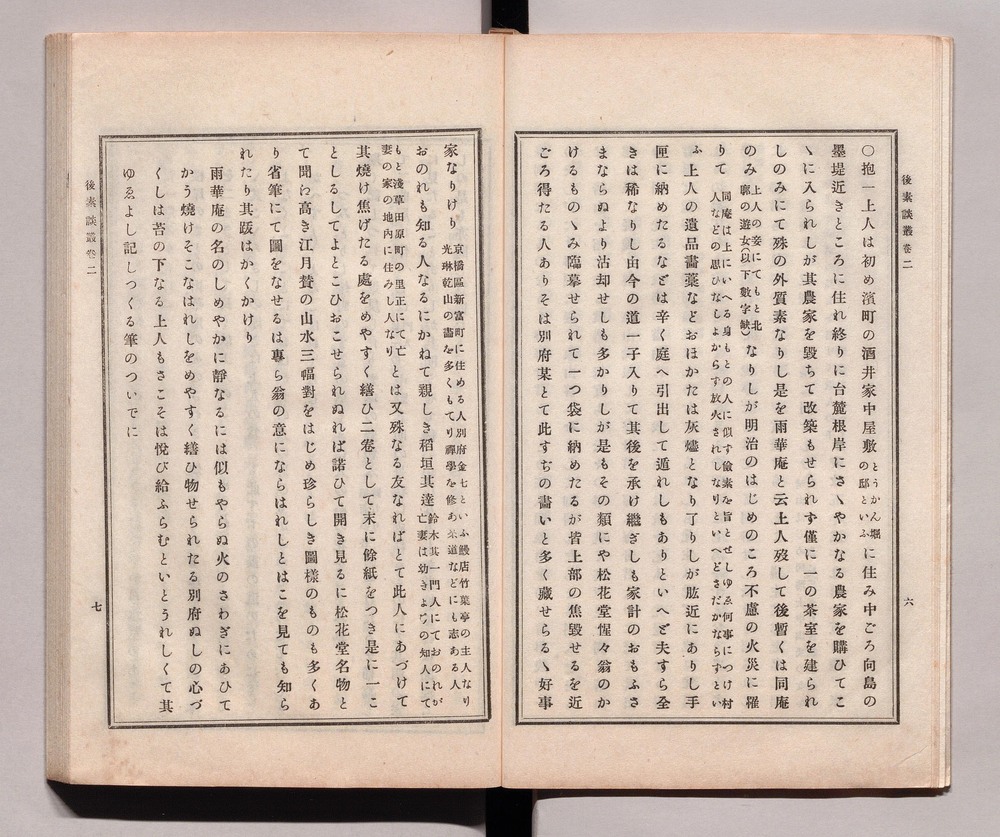 後素談叢卷二
六
〇抱一上人は初め濱町の酒井家中屋敷とうかん堀の邸といふに住み中ごろ向島の
墨堤近きところに住れ終りに台麓根岸にさゝやかなる農家を購ひてこ
ゝに入られしが其農家を毀ちて改築もせられず僅に一の茶室を建られ
しのみにて殊の外質素なりし是を雨華庵と云上人歿して後暫くは同庵
のみ上人の妾にてもと北廓の遊女(以下數字缺)なりしが明治のはじめのころ不慮の火災に罹
りて同庵は上にいへる身もとの人に似す儉素を旨とせしゆゑ何事につけ村人などの思ひなしよからす放火されしなりといへどさだかならすといふ
上人の遺品畵藁などおほかたは灰燼となり了りしが肱近にありし手
匣に納めたるなどは辛く庭へ引出して遁れしもありといへど夫すら全
きは稀なりし由今の道一子入りて其後を承け繼ぎしも家計のおもふさ
まならぬより沽却せしも多かりしが是もその類にや松花堂惺々翁のか
けるものゝみ臨摹せられて一つ袋に納めたるが皆上部の焦毀せるを近
ごろ得たる人ありそは別府某とて此すぢの畵いと多く藏せらるゝ好事
家なりけり京橋區新富町に住める人別府金七といふ饅店竹葉亭の主人なり光琳乾山の畵を多くもてり禪學を修め茶道などにも志ある人
おのれも知る人なるにかねて親しき稻垣其達鈴木其一門人にておのれが亡妻は幼きよりの知人にて
もと淺草田原町の里正にて亡妻の家の地內に住みし人なりとは又殊なる友なればとて此人にあづけて
其燒け焦げたる處をめやすく繕ひ二卷として末に餘紙をつき是に一こ
としるしてよとこひおこせられぬれば諾ひて開き見るに松花堂名物と
て聞ゎ高き江月賛の山水三幅對をはじめ珍らしき圖樣のものも多くあ
り省筆にて圖をなせるは專ら翁の意にならはれしとはこを見ても知ら
れたり其跋はかくかけり
雨華庵の名のしめやかに靜なるには似もやらぬ火のさわぎにあひて
かう燒けそこなはれしをめやすく繕ひ物せられたる別府ぬしの心づ
くしは苔の下なる上人もさこそは悅び給ふらむといとうれしくて其
ゆゑよし記しつくる筆のついでに
後素談叢卷二
七